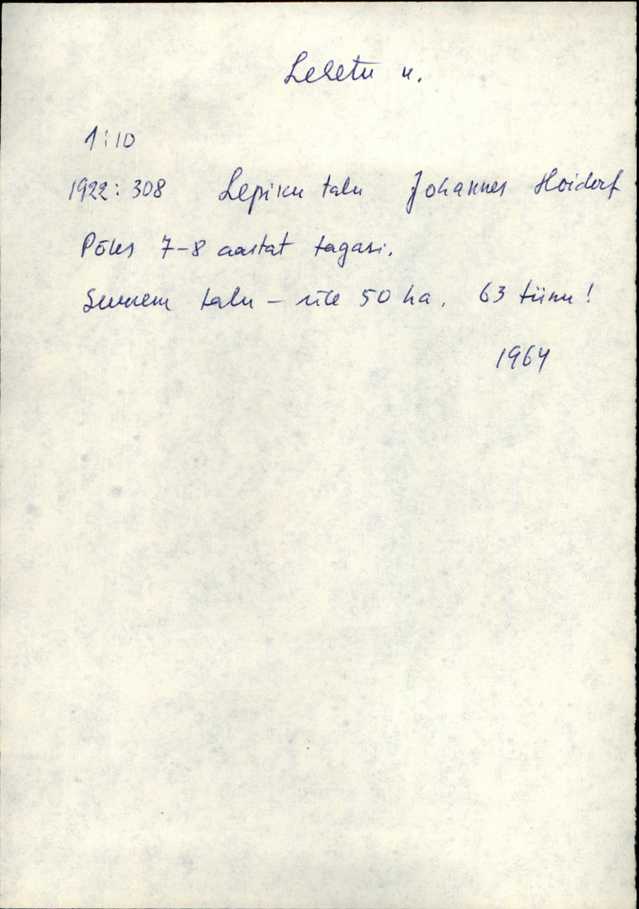 Leletu k.
1:10
1922: 308 Lepiku talu Johannes Hoidorf
Põles 7-8 aastat tagasi.
Suurem talu - üle 50 ha. 63 tiinu!
1964